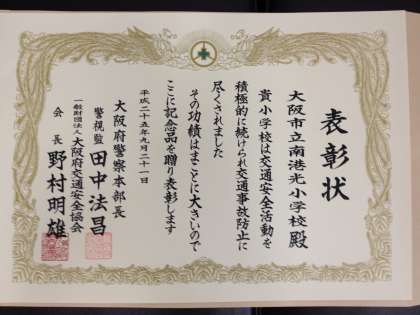 表彰状
大阪市立南港光小学校殿
貴小学校は交通安全活動を
積極的に続けられ交通事故防止に
尽くされました
その功績はまことに大きいので
ここに記念品を贈り表彰します
平成二十五年九月二十一日
大阪府警察本部長
警視監 田中法昌
一般財団法人大阪府交通安全協会
会長 野村明雄